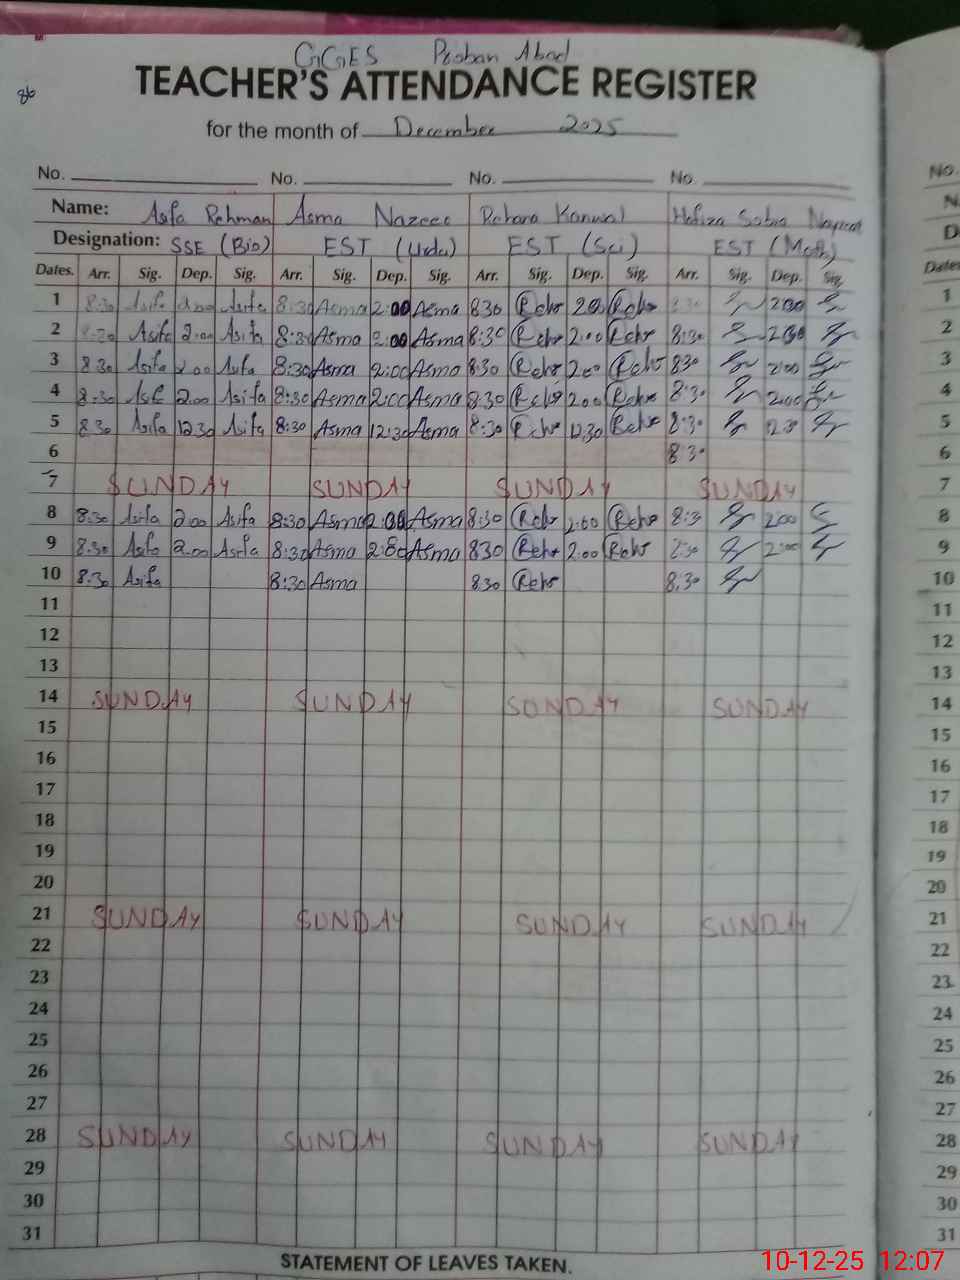 GGES
86
TEACHER'S ATTENDANCE REGISTER
for the month of December 2025
No. No. No. No. No.
Name: Asfa Rehman Asma Nazeer Rehana Kanwal Hafiza Sobia
Designation: SSE (Bio) EST (Urdu) EST (Sci) EST (Math) D
Dates. Arr. Sig. Dep. Sig. Arr. Sig. Dep. Sig. Arr. Sig. Dep. Sig. Arr. Sig. Dep. Sig. Dates
1 8:30 Asifa 2:00 Asifa 8:30 Asma 2:00 Asma 8:30 Reha 2:00 Reha 8:30 2:00 1
2 8:30 Asifa 2:00 Asifa 8:30 Asma 2:00 Asma 8:30 Reha 2:00 Reha 8:30 2:00 2
3 8:30 Asifa 2:00 Asfa 8:30 Asma 2:00 Asma 8:30 Reha 2:00 Reha 8:30 2:00 3
4 8:30 2:00 Asifa 8:30 Asma 2:00 Asma 8:30 Reha 2:00 Reha 8:30 2:00 4
5 8:30 Asifa 12:30 Asifa 8:30 Asma 12:30 Asma 8:30 Reha 12:30 Reha 8:30 5
6 8:30 6
7 SUNDAY SUNDAY SUNDAY SUNDAY 7
8 8:30 Asifa 2:00 Asifa 8:30 Asma 2:00 Asma 8:30 Reha 2:00 Reha 8:3 2:00 8
9 8:30 Asifa 2:00 Asifa 8:30 Asma 2:00 Asma 8:30 Reha 2:00 Reha 2:00 9
10 8:30 Asifa 8:30 Asma 8:30 Reha 8:30 10
11 11
12 12
13 13
14 SUNDAY SUNDAY SUNDAY SUNDAY 14
15 15
16 16
17 17
18 18
19 19
20 20
21 SUNDAY SUNDAY SUNDAY SUNDAY 21
22 22
23 23
24 24
25 25
26 26
27 27
28 SUNDAY SUNDAY SUNDAY SUNDAY 28
29 29
30 30
31 31
STATEMENT OF LEAVES TAKEN.
10-12-25 12:07